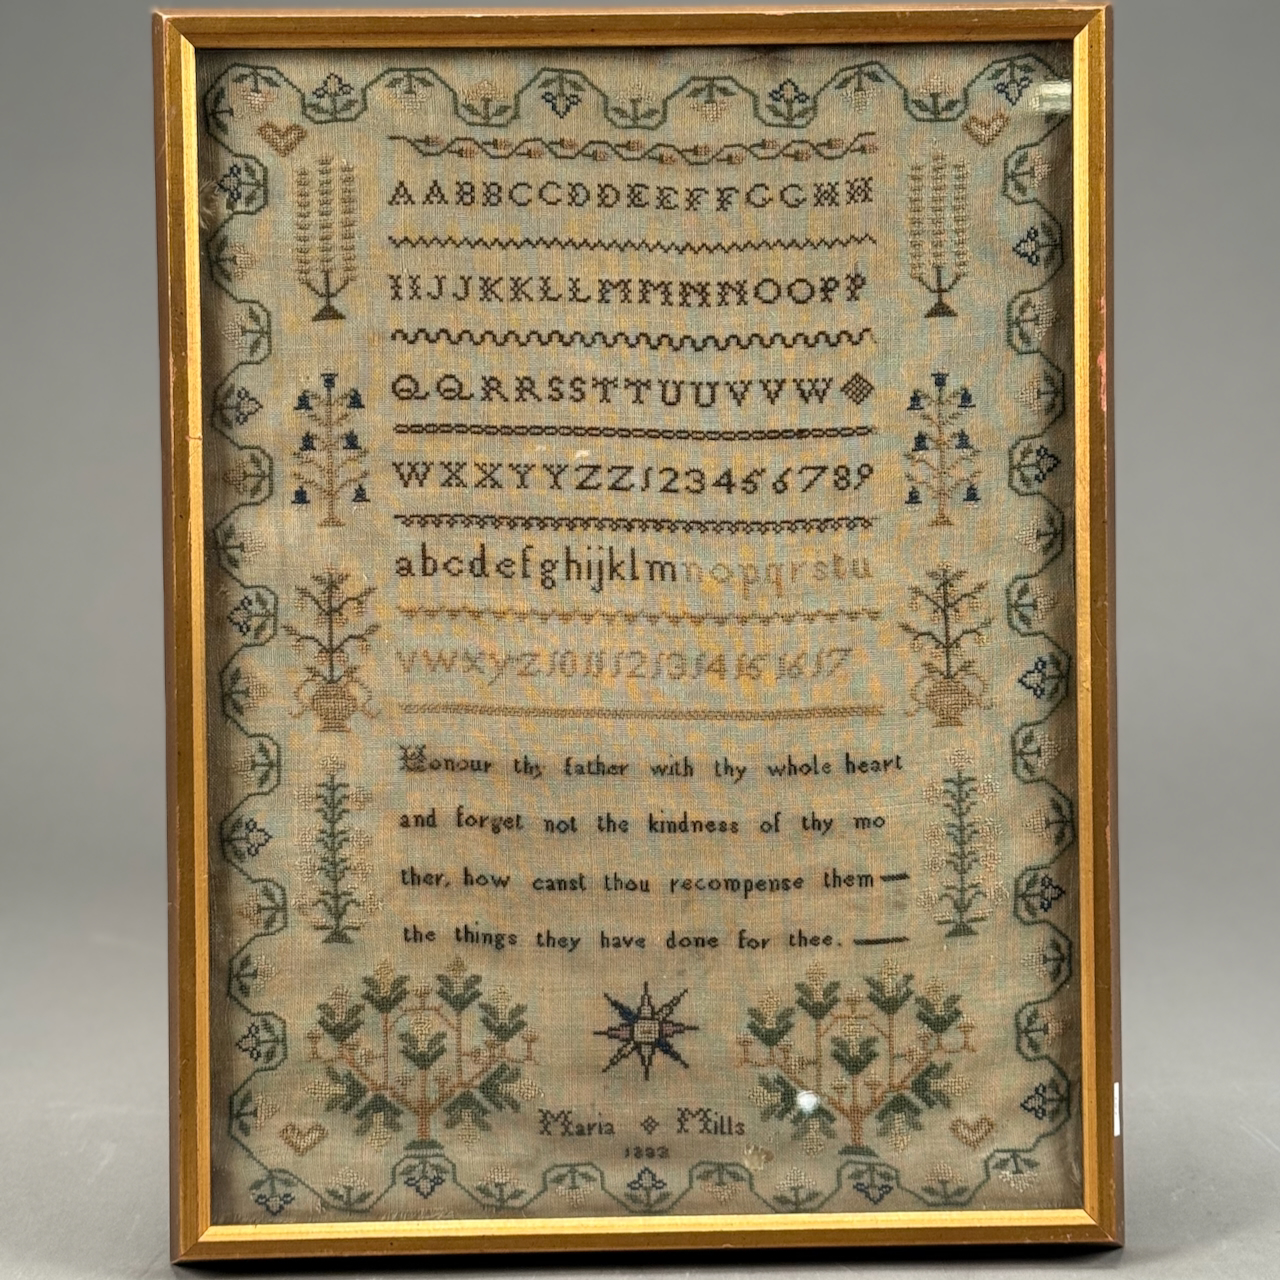 AABBCCDDEEFFGGHH
IIJJKKLLMMNNOOPP
QQRRSSTTUUVVW
WXXYYZZ123456789
abcdefghijklmnopqrstu
vwxyz 10 11 12 13 14 15 16 17
Honour thy father with thy whole heart
and forget not the kindness of thy mo
ther, how canst thou recompense them —
the things they have done for thee. —
Maria Mills